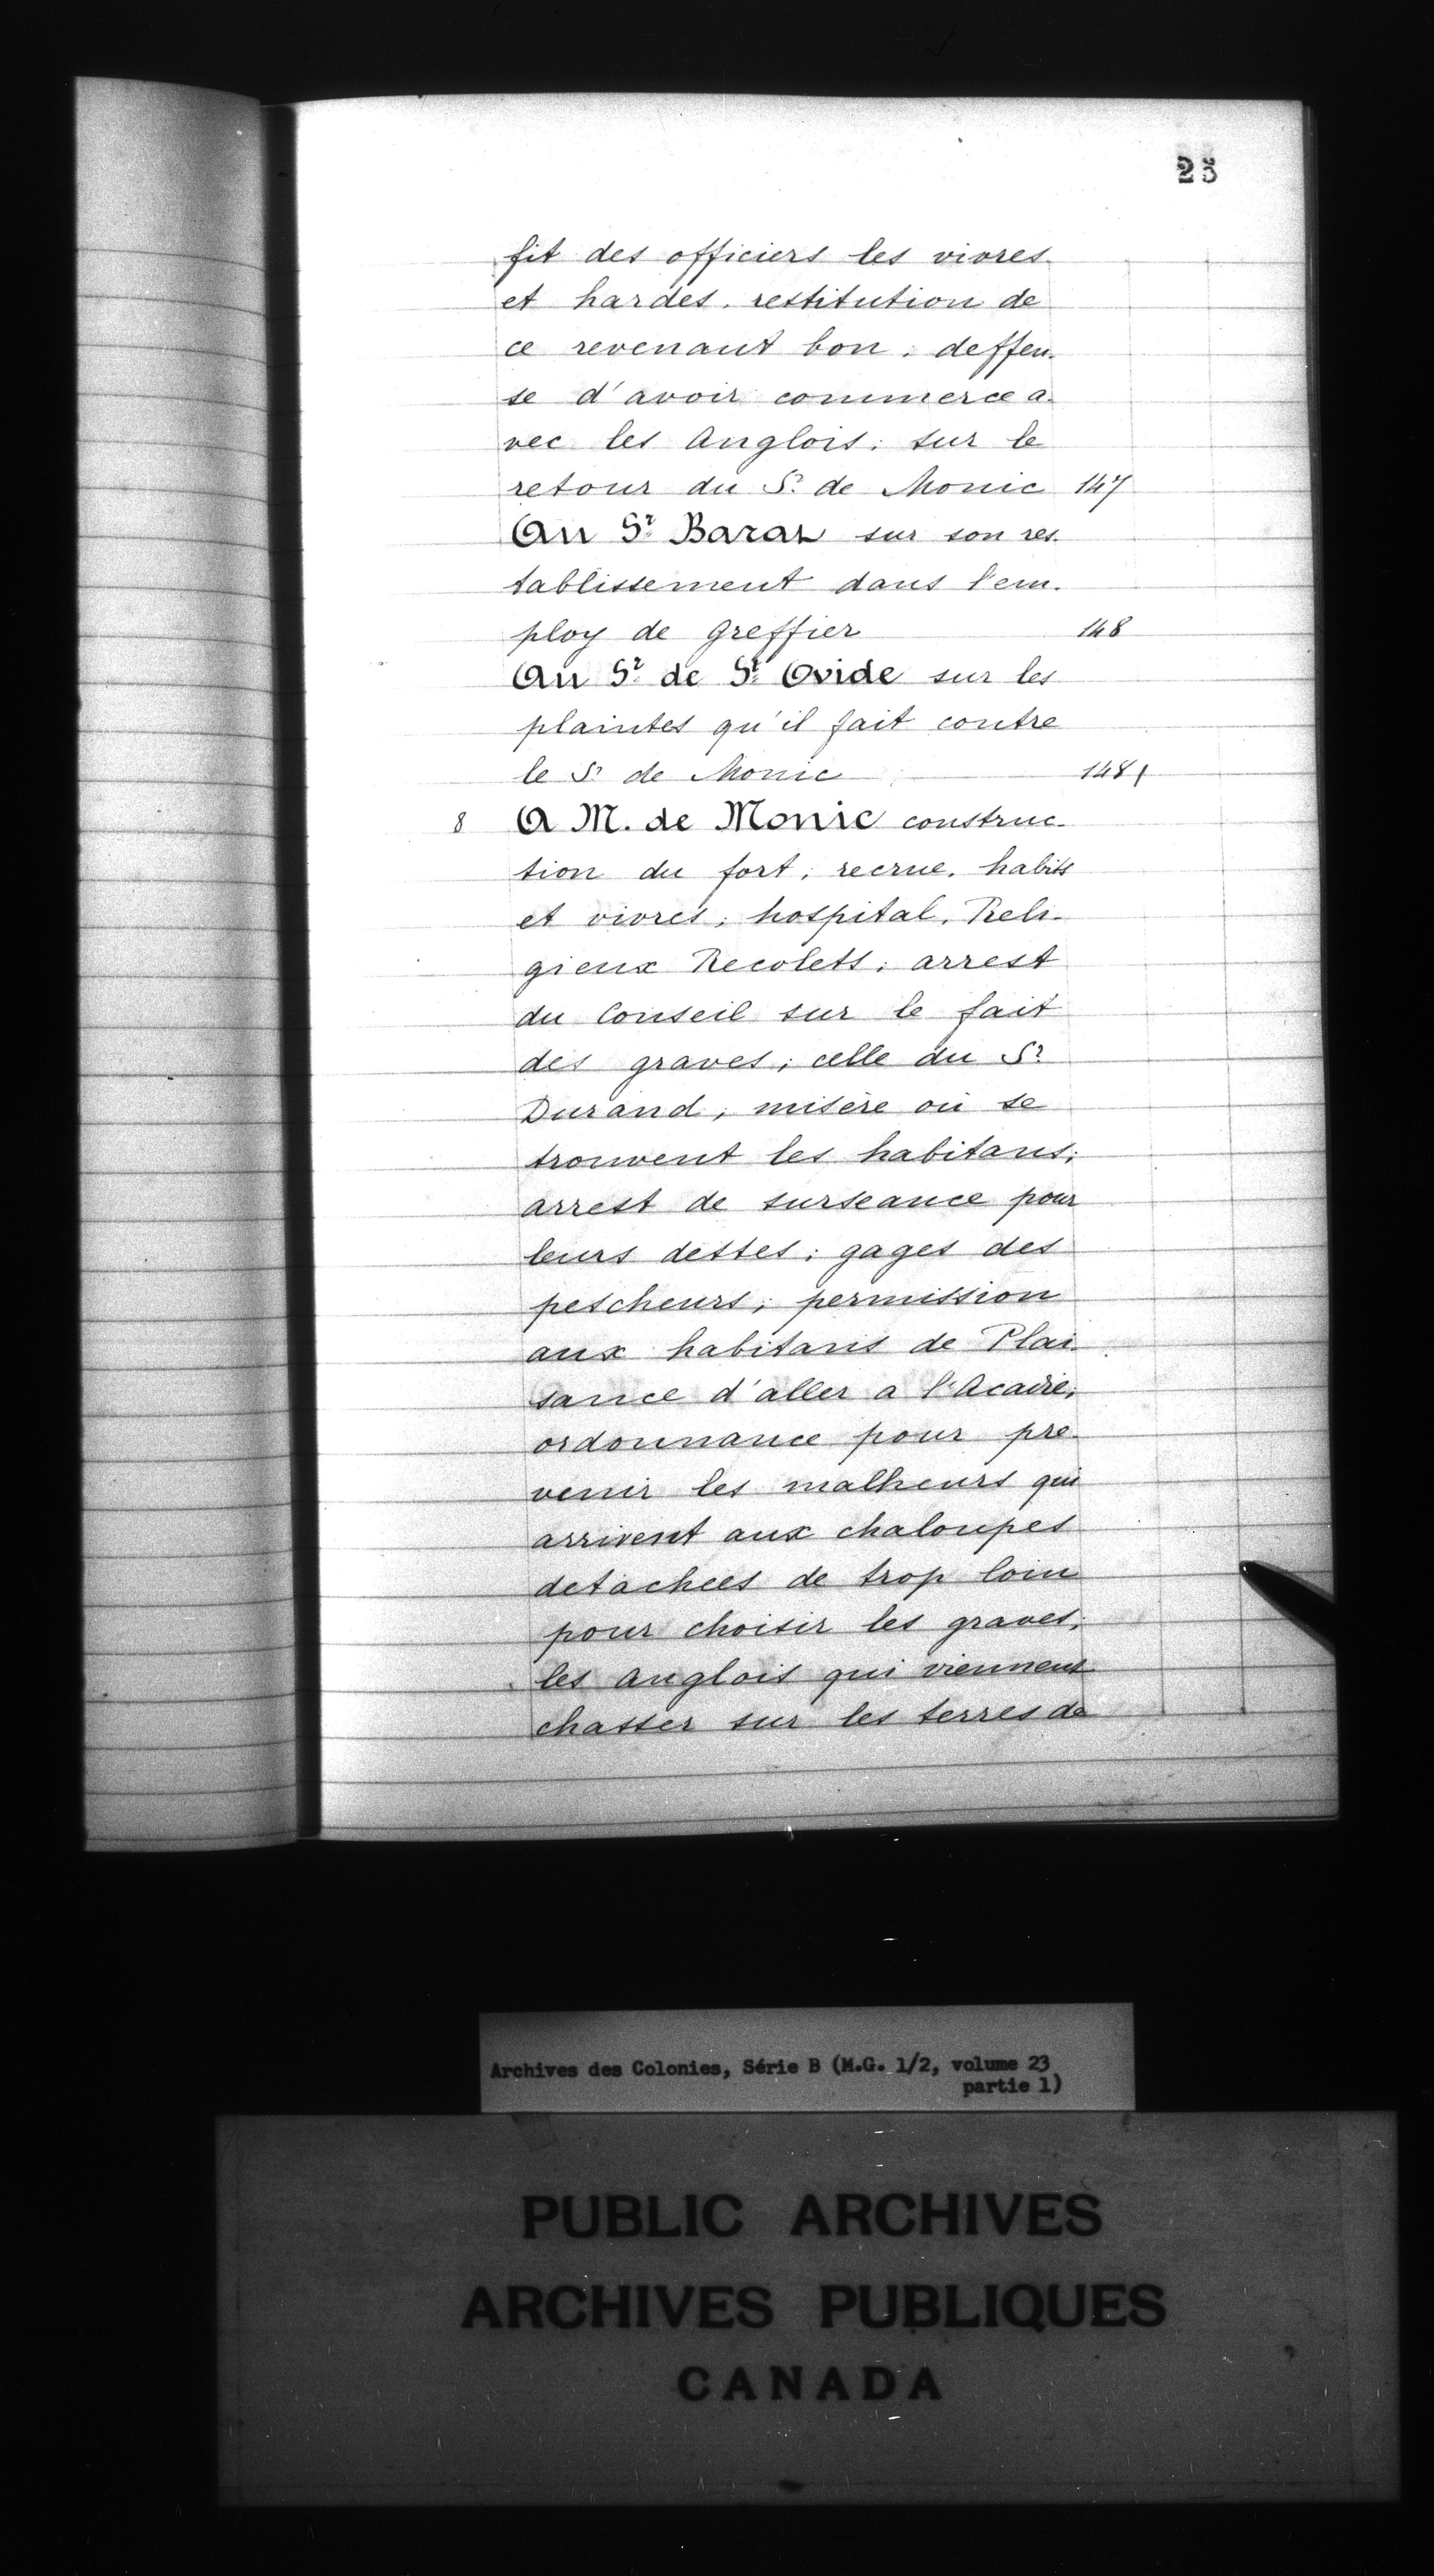 23
fit des officiers les vivres
et hardes. restitution de
ce revenant bon; deffen-
se d'avoir commerce a-
vec les Anglois; sur le
retour du Sr. de Monic 147
Au Sr. Baraz sur son res-
tablissement dans l'em-
ploy de Greffier 148
Au Sr. de St. Ovide sur les
plaintes qu'il fait contre
le Sr de Monic 148
8 A M. de Monic construc-
tion du fort; recrue, habits
et vivres; hospital. Reli-
gieux Recolets; arrest
du Conseil sur le fait
des graves; celle du Sr.
Durand; misère où se
trouvent les habitans;
arrest de surseance pour
leurs dettes; gages des
pescheurs; permission
aux habitans de Plai-
sance d'aller a l'Acadie;
ordonnance pour pre-
venir les malheurs qui
arrivent aux chaloupes
detachées de trop loin
pour choisir les graves;
les Anglois qui viennent
chasser sur les terres de
Archives des Colonies, Série B (M.G. 1/2, volume 23
partie 1)
PUBLIC ARCHIVES
ARCHIVES PUBLIQUES
CANADA